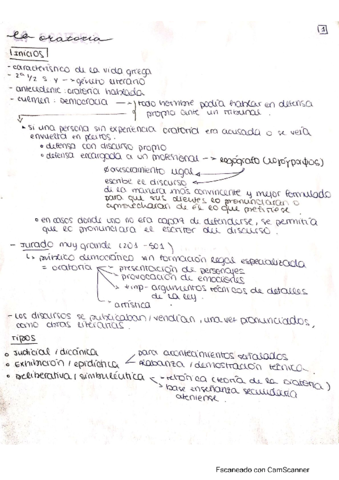 1
la oratoria
Inicios
- característico de la vida griega
- 2ª 1/2 s. V --> género literario
- antecedente: oratoria hablada
- culmen: democracia --> todo hombre podía hablar en defensa
propia ante un tribunal.
• si una persona sin experiencia oratoria era acusada o se veía
envuelta en pleitos:
• defensa con discurso propio
• defensa encargada a un profesional --> logógrafo
asesoramiento legal
escribe el discurso
de la manera más convincente y mejor formulado
para que sus clientes lo pronunciaran o
aprovecharan de él lo que
• en casos donde uno no era capaz de defenderse, se permitía
que lo pronunciara el escritor del discurso.
- Jurado muy grande (201 - 501)
↳ público democrático sin formación legal especializada
= oratoria
- presentación de personajes
- provocación de emociones
+ imp. argumentos técnicos de detalles
de la ley
- artística
- Los discursos se publicaban/vendían, una vez pronunciados,
como obras literarias.
Tipos
• judicial / dicánica
• exhibición / epidíctica
para acontecimientos señalados
alabanza / demostración técnica
• deliberativa / simbuléutica
- retórica (teoría de la oratoria)
base enseñanza secundaria
ateniense.
Escaneado con CamScanner